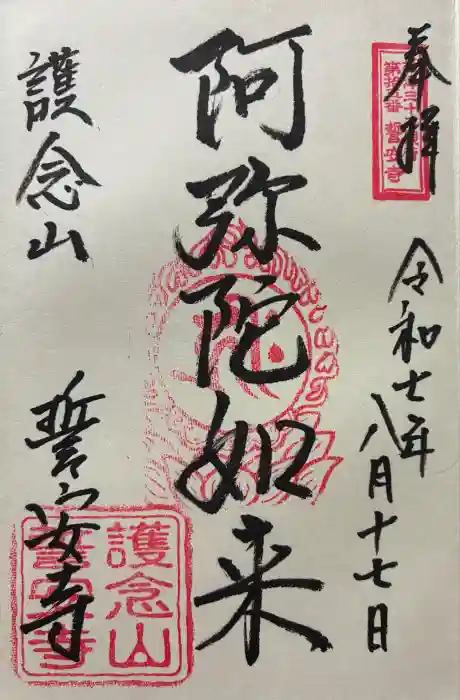 奉拝
第拾五番 誓安寺
令和七年
八月十七日
阿弥陀如来
護念山
誓安寺
護念山
誓安寺